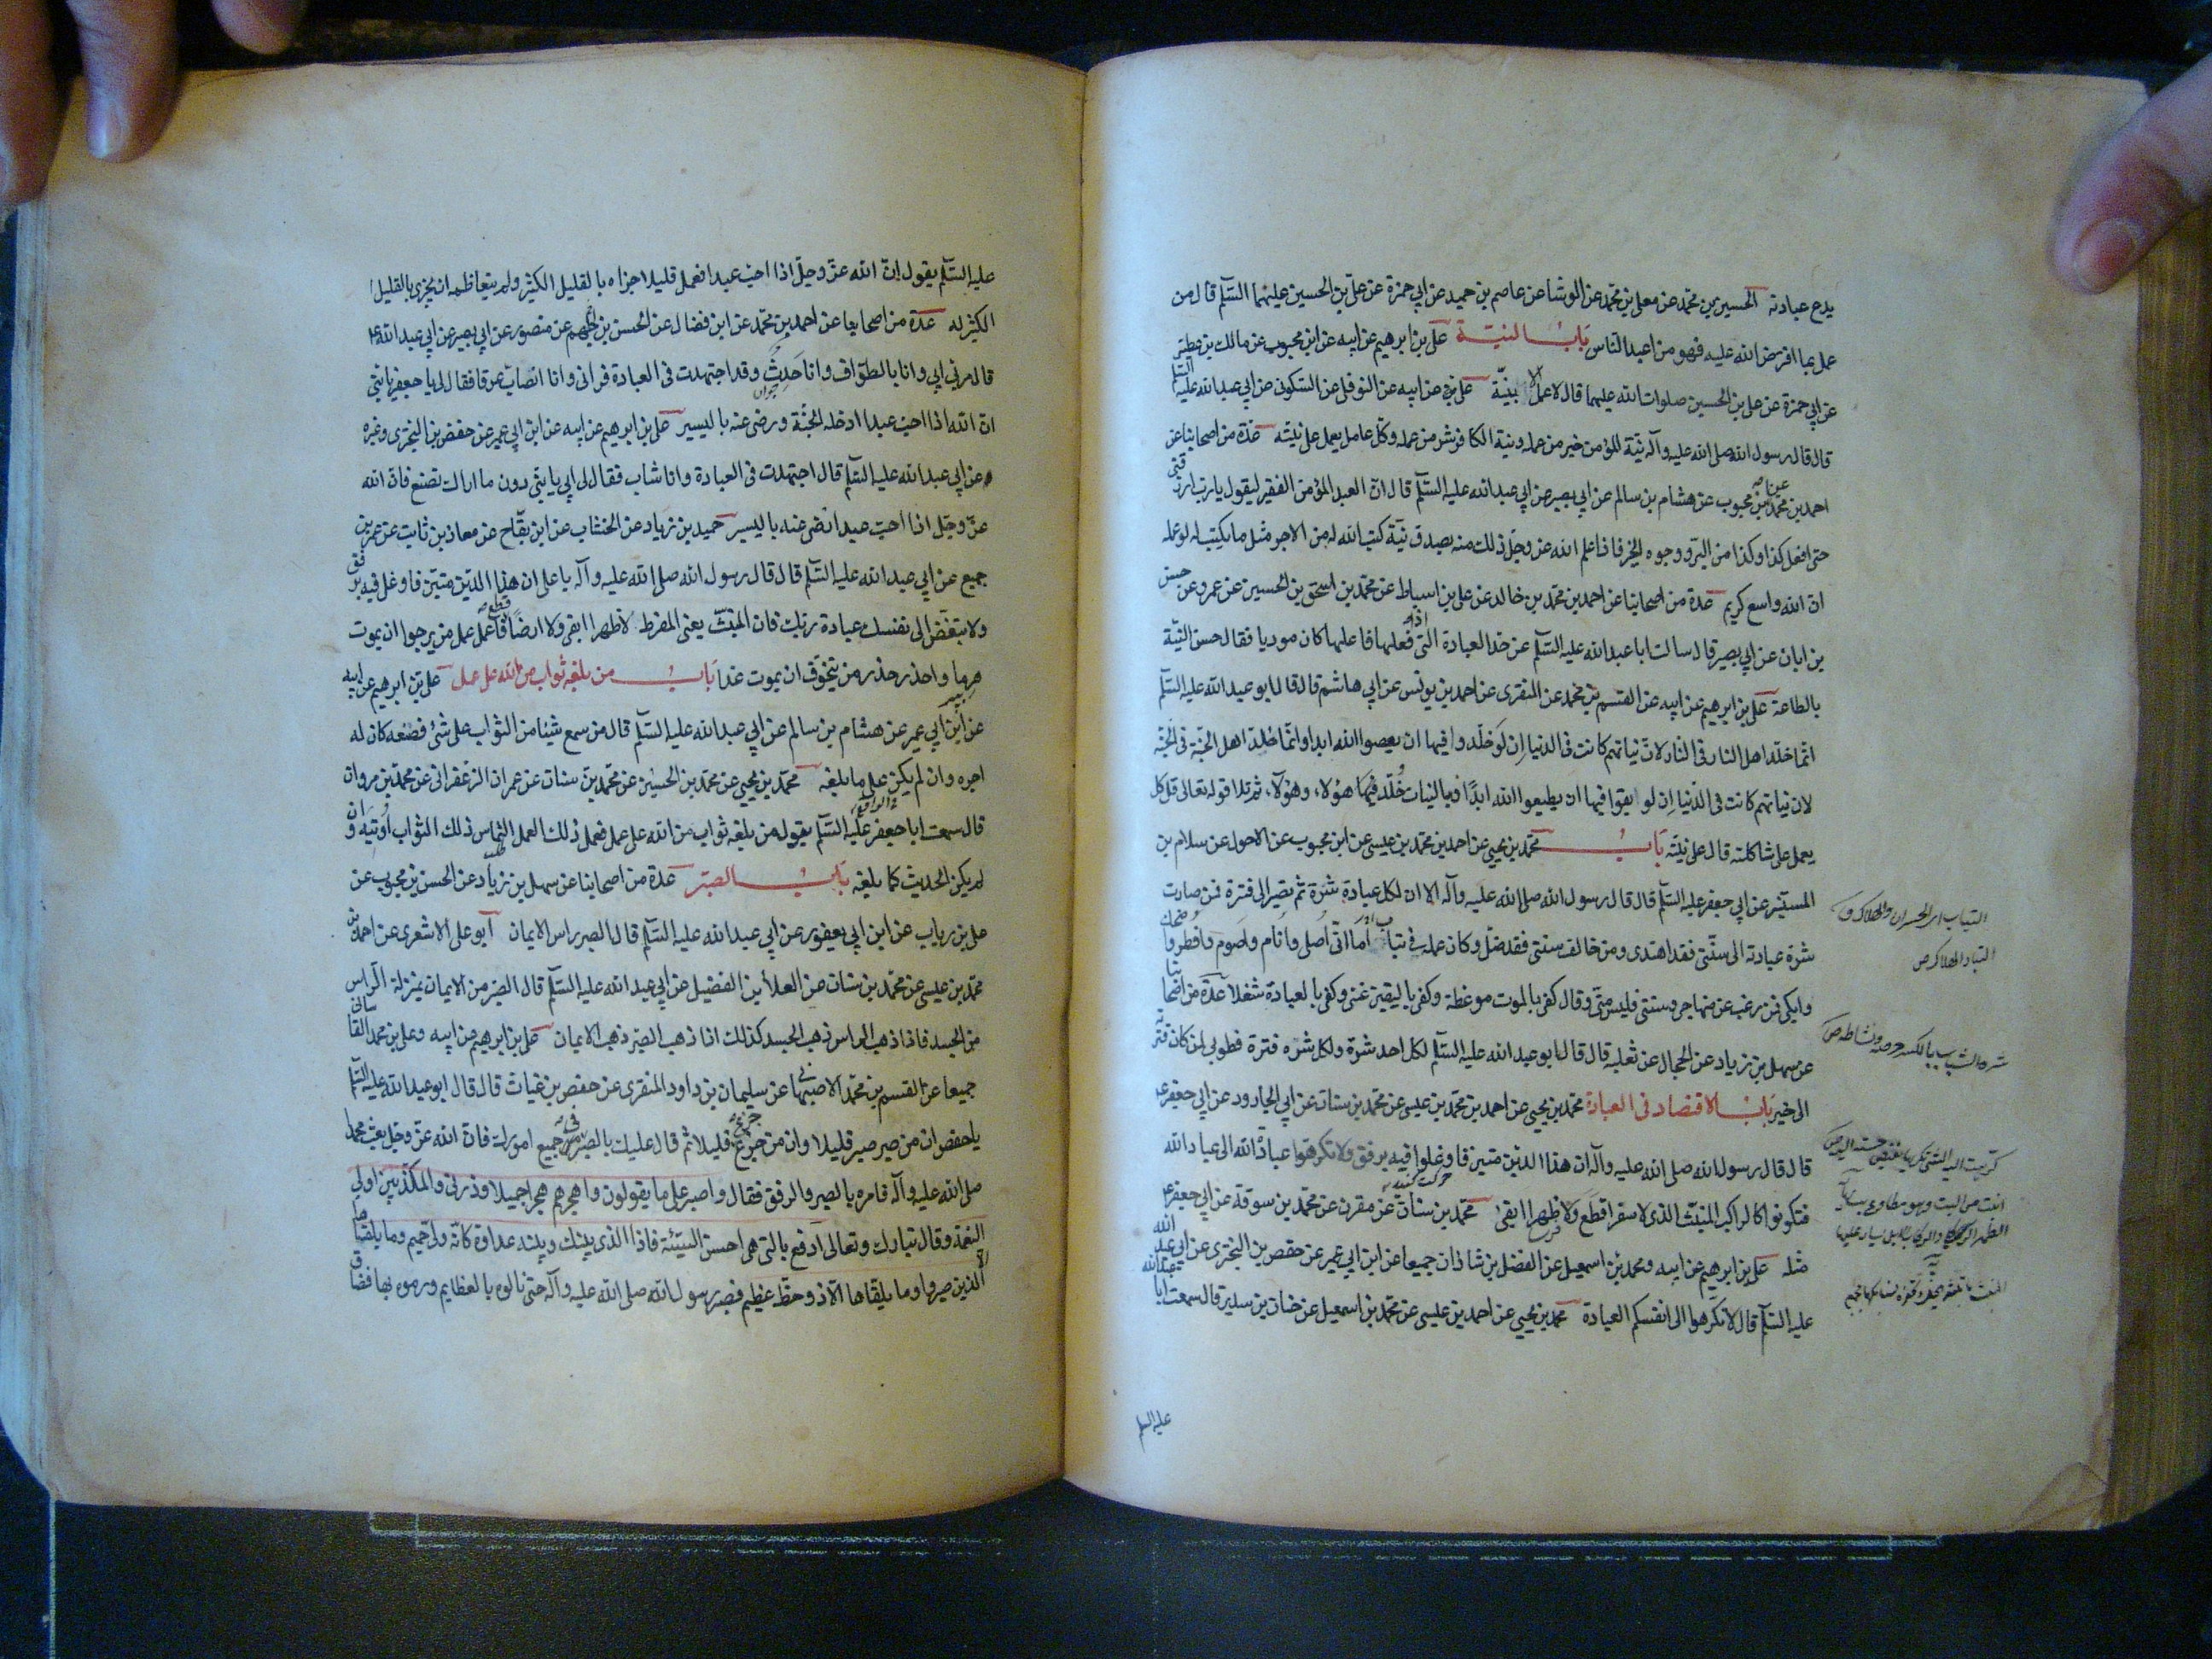 يدع عبادته الحسين بن محمد عن معلى بن محمد عن الوشا عن عاصم بن حميد عن ابي حمزة عن علي بن الحسين عليهما السلم قال من
عمل بما افترض الله عليه فهو من اعبد الناس باب النية علي بن ابرهيم عن ابيه عن ابن محبوب عن مالك بن عطية
عن ابي حمزة عن علي بن الحسين صلوات الله عليهما قال لا عمل الا بنية علي عن ابيه عن النوفلي عن السكوني عن ابي عبد الله عليه السلم
قال قال رسول الله صلى الله عليه وآله نية المؤمن خير من عمله ونية الكافر شر من عمله وكل عامل يعمل على نيته عدة من اصحابنا عن
احمد بن محمد عن ابن محبوب عن هشام بن سالم عن ابي بصير عن ابي عبد الله عليه السلم قال ان العبد المؤمن الفقير ليقول يا رب ارزقني
حتى افعل كذا وكذا من البر ووجوه الخير فاذا علم الله عز وجل ذلك منه بصدق نية كتب الله له من الاجر مثل ما يكتب له لو عمله
ان الله واسع كريم عدة من اصحابنا عن احمد بن محمد بن خالد عن علي بن اسباط عن محمد بن اسحق بن الحسين عن عمرو عن حسن
بن ابان عن ابي بصير قال سالت ابا عبد الله عليه السلم عن حد العبادة التي اذا فعلها فاعلها كان موديا فقال حسن النية
بالطاعة علي بن ابرهيم عن ابيه عن القسم بن محمد عن المنقري عن احمد بن يونس عن ابي هاشم قال قال ابو عبد الله عليه السلم
انما خلد اهل النار في النار لان نياتهم كانت في الدنيا ان لو خلدوا فيها ان يعصوا الله ابدا وانما خلد اهل الجنة في الجنة
لان نياتهم كانت في الدنيا ان لو بقوا فيها ان يطيعوا الله ابدا فبالنيات خلد هؤلاء وهؤلاء ثم تلا قوله تعالى قل كل
يعمل على شاكلته قال على نيته باب محمد بن يحيى عن احمد بن محمد بن عيسى عن ابن محبوب عن الاحول عن سلام بن
المستنير عن ابي جعفر عليه السلم قال قال رسول الله صلى الله عليه وآله الا ان لكل عبادة شرة ثم تصير الى فترة فمن صارت
شرة عبادته الى سنتي فقد اهتدى ومن خالف سنتي فقد ضل وكان عمله في تباب اما اني اصلي وانام واصوم وافطر واضحك
وابكي فمن رغب عن منهاجي وسنتي فليس مني وقال كفى بالموت موعظة وكفى باليقين غنى وكفى بالعبادة شغلا عدة من اصحابنا
عن سهل بن زياد عن الحجال عن ثعلبة قال قال ابو عبد الله عليه السلم لكل احد شرة ولكل شره فترة فطوبى لمن كان فترته
الى خير باب الاقتصاد في العبادة محمد بن يحيى عن احمد بن محمد بن عيسى عن محمد بن سنان عن ابي الجارود عن ابي جعفر ع
قال قال رسول الله صلى الله عليه وآله ان هذا الدين متين فاوغلوا فيه برفق ولا تكرهوا عبادة الله الى عباد الله
فتكونوا كالراكب المنبت الذي لا سفرا قطع ولا ظهرا ابقى محمد بن سنان عن مقرن عن محمد بن سوقة عن ابي جعفر ع
مثله علي بن ابرهيم عن ابيه ومحمد بن اسمعيل عن الفضل بن شاذان جميعا عن ابن ابي عمير عن حفص بن البختري عن ابي عبد الله
عليه السلم قال لا تكرهوا الى انفسكم العبادة محمد بن يحيى عن احمد بن عيسى عن محمد بن اسمعيل عن حنان بن سدير قال سمعت ابا عبد الله
عليه السلم
التباب الخسران والهلاك
التبار الهلاك ص
عليه السلم يقول ان الله عز وجل اذا احب عبدا فعمل قليلا اجزاه بالقليل الكثير ولم يتعاظمه ان يجزي بالقليل
الكثير له عدة من اصحابنا عن احمد بن محمد عن ابن فضال عن الحسن بن الجهم عن منصور عن ابي بصير عن ابي عبد الله ع
قال مر بي ابي وانا بالطواف وانا حدث وقد اجتهدت في العبادة فراني وانا اتصاب عرقا فقال لي يا جعفر يا بني
ان الله اذا احب عبدا ادخله الجنة ورضي عنه باليسير علي بن ابرهيم عن ابيه عن ابن ابي عمير عن حفص بن البختري وغيره
عن ابي عبد الله عليه السلم قال اجتهدت في العبادة وانا شاب فقال لي ابي يا بني دون ما اراك تصنع فان الله
عز وجل اذا احب عبدا رضي عنه باليسير حميد بن زياد عن الخشاب عن ابن بقاح عن معاذ بن ثابت عن عمرو بن
جميع عن ابي عبد الله عليه السلم قال قال رسول الله صلى الله عليه وآله يا علي ان هذا الدين متين فاوغل فيه برفق
ولا تبغض الى نفسك عبادة ربك فان المنبت يعني المفرط لا ظهرا ابقى ولا ارضا قطع فاعمل عمل من يرجوا ان يموت
هرما واحذر حذر من يتخوف ان يموت غدا باب من بلغه ثواب من الله على عمل علي بن ابرهيم عن ابيه
عن ابن ابي عمير عن هشام بن سالم عن ابي عبد الله عليه السلم قال من سمع شيئا من الثواب على شئ فصنعه كان له
اجره وان لم يكن على ما بلغه محمد بن يحيى عن محمد بن الحسين عن محمد بن سنان عن عمران الزعفراني عن محمد بن مروان
قال سمعت ابا جعفر عليه السلم يقول من بلغه ثواب من الله على عمل فعمل ذلك العمل التماس ذلك الثواب اوتيه وان
لم يكن الحديث كما بلغه باب الصبر عدة من اصحابنا عن سهل بن زياد عن الحسن بن محبوب عن
علي بن رياب عن ابن ابي يعفور عن ابي عبد الله عليه السلم قال الصبر راس الايمان ابو علي الاشعري عن احمد بن
محمد بن عيسى عن محمد بن سنان عن العلا بن الفضيل عن ابي عبد الله عليه السلم قال الصبر من الايمان بمنزلة الراس
من الجسد فاذا ذهب الراس ذهب الجسد كذلك اذا ذهب الصبر ذهب الايمان علي بن ابرهيم عن ابيه وعلي بن محمد القاساني
جميعا عن القسم بن محمد الاصبهاني عن سليمان بن داود المنقري عن حفص بن غياث قال قال ابو عبد الله عليه السلم
يا حفص ان من صبر صبر قليلا وان من جزع جزع قليلا ثم قال عليك بالصبر في جميع امورك فان الله عز وجل بعث محمدا
صلى الله عليه وآله فامره بالصبر والرفق فقال واصبر على ما يقولون واهجرهم هجرا جميلا وذرني والمكذبين اولي
النعمة وقال تبارك وتعالى ادفع بالتي هي احسن السيئة فاذا الذي بينك وبينه عداوة كانه ولي حميم وما يلقاها
الا الذين صبروا وما يلقاها الا ذو حظ عظيم فصبر رسول الله صلى الله عليه وآله حتى نالوه بالعظايم ورموه بها فضاق